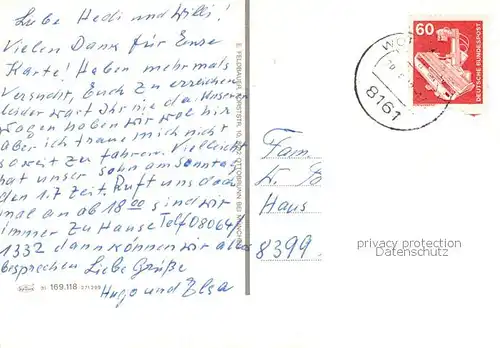 Liebe Hedi und Willi!
Vielen Dank für Eure
Karte! Haben mehrmals
versucht, Euch zu erreichen
leider wart Ihr nie da. Unseren
Wagen haben wir wohl hier
aber ich traue mich nicht
soweit zu fahren. Vielleicht
hat unser Sohn am Sonntag
den 1.7 Zeit. Ruft uns doch
mal an ab 18 00 sind wir
immer zu Hause Telf 08064/
1332 dann können wir alles
besprechen Liebe Grüße
Hugo und Elsa
169.118
E. FELDBAUER, OTTOBRUNN BEI MÜNCHEN
60
DEUTSCHE BUNDESPOST
8161
Fam
Haus
8399
privacy protection
Datenschutz